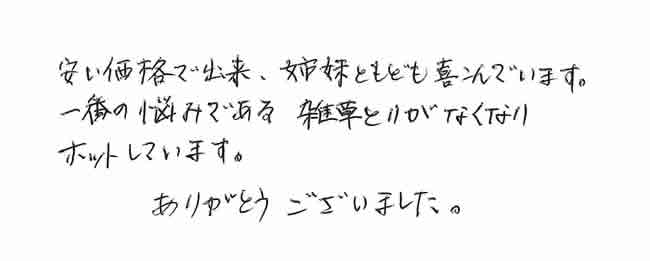 安い価格で出来、姉妹ともども喜こんでいます。
一番の悩みである 雑草とりがなくなり
ホットしています。
ありがとう ございました。